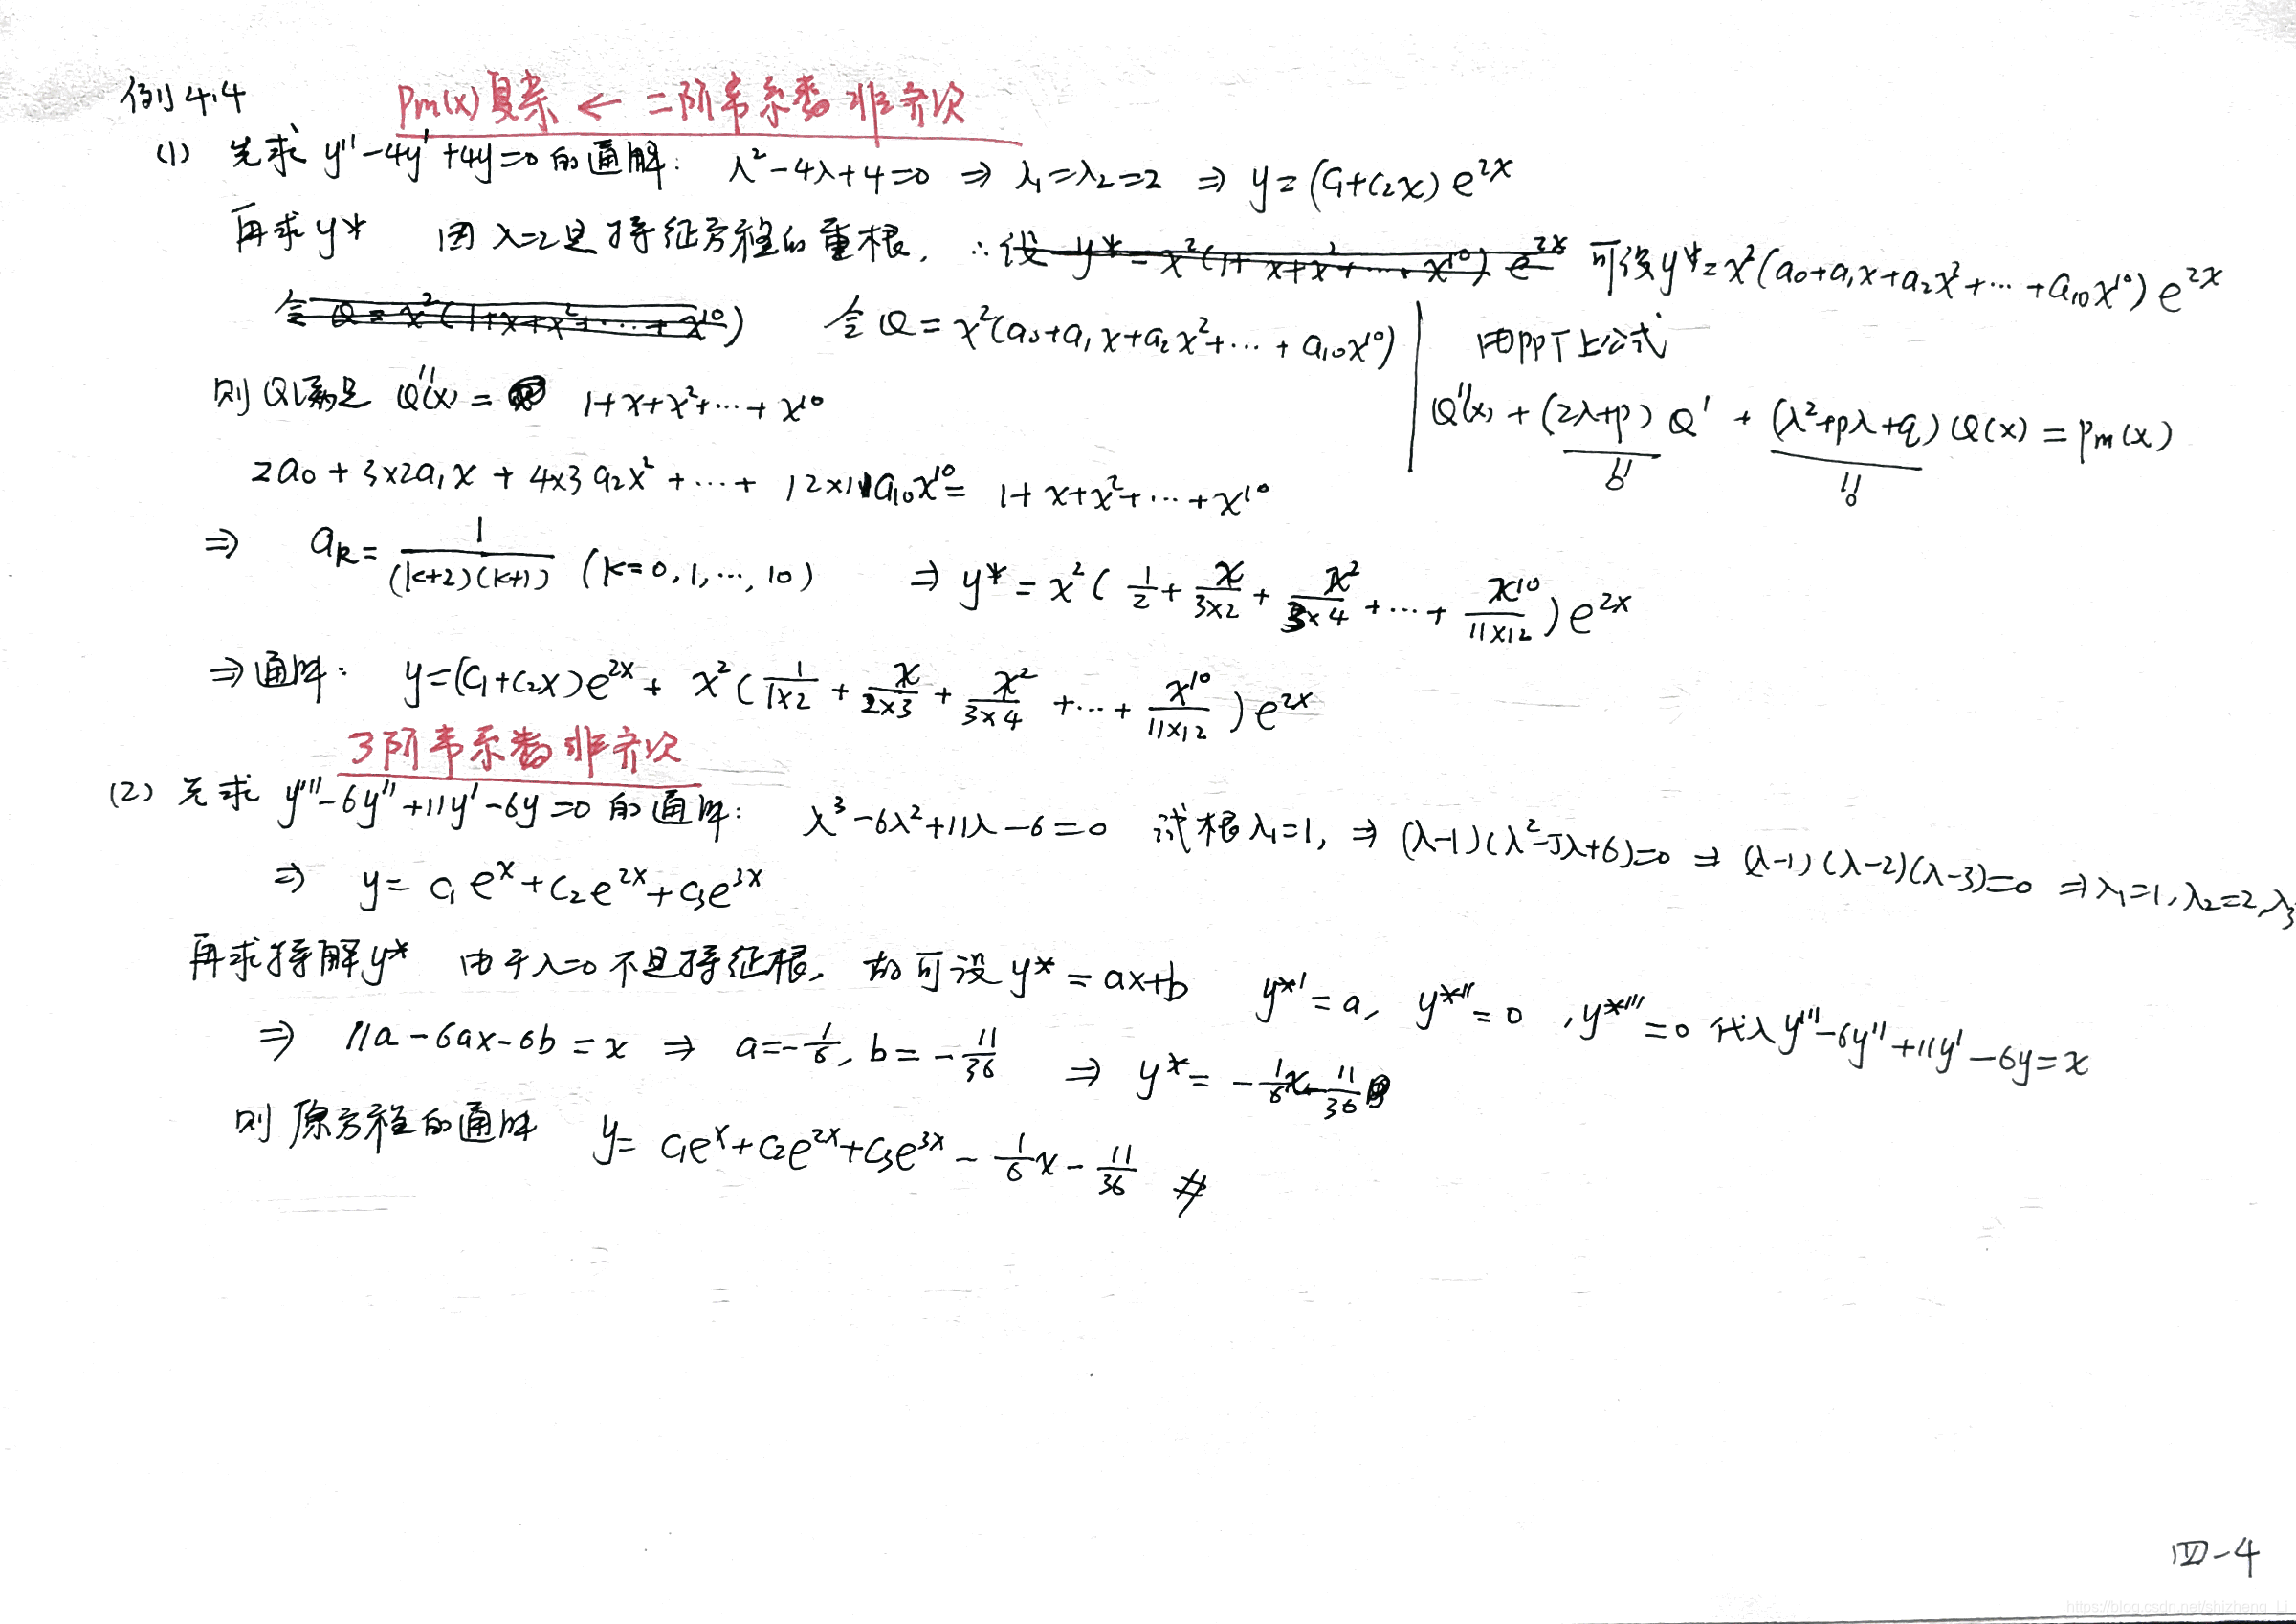 例4.4
Pm(x)复杂 ← 二阶常系数非齐次
(1) 先求 y''-4y'+4y=0 的通解: λ²-4λ+4=0 ⇒ λ₁=λ₂=2 ⇒ y=(C₁+C₂x)e^{2x}
再求 y* 因 λ=2是特征方程的重根, ∴设 y*=x²(1+x+x²+…+x^{10})e^{2x} 可设y*=x²(a₀+a₁x+a₂x²+…+a₁₀x^{10})e^{2x}
令 Q=x²(1+x+x²+…+x^{10}) 令 Q=x²(a₀+a₁x+a₂x²+…+a₁₀x^{10})
用PPT上公式
则 Q满足 Q''(x)= 1+x+x²+…+x^{10}
Q''(x)+(2λ+p)Q'+(λ²+pλ+q)Q(x)=Pm(x)
0 0
2a₀+3×2a₁x+4×3a₂x²+…+12×11a₁₀x^{10}=1+x+x²+…+x^{10}
⇒ a_k=\frac{1}{(k+2)(k+1)} (k=0,1,…,10) ⇒ y*=x²(\frac{1}{2}+\frac{x}{3×2}+\frac{x²}{3×4}+…+\frac{x^{10}}{11×12})e^{2x}
⇒通解: y=(C₁+C₂x)e^{2x}+x²(\frac{1}{1×2}+\frac{x}{2×3}+\frac{x²}{3×4}+…+\frac{x^{10}}{11×12})e^{2x}
3阶常系数非齐次
(2) 先求 y'''-6y''+11y'-6y=0 的通解: λ³-6λ²+11λ-6=0 试根λ₁=1, ⇒ (λ-1)(λ²-5λ+6)=0 ⇒ (λ-1)(λ-2)(λ-3)=0 ⇒λ₁=1,λ₂=2,λ₃
⇒ y=C₁e^x+C₂e^{2x}+C₃e^{3x}
再求特解y* 由于λ=0不是特征根, 故可设y*=ax+b y*'=a, y*''=0 ,y*'''=0 代入y'''-6y''+11y'-6y=x
⇒ 11a-6ax-6b=x ⇒ a=-\frac{1}{6}, b=-\frac{11}{36} ⇒ y*=-\frac{1}{6}x-\frac{11}{36}
则原方程的通解 y=C₁e^x+C₂e^{2x}+C₃e^{3x}-\frac{1}{6}x-\frac{11}{36} #
四-4